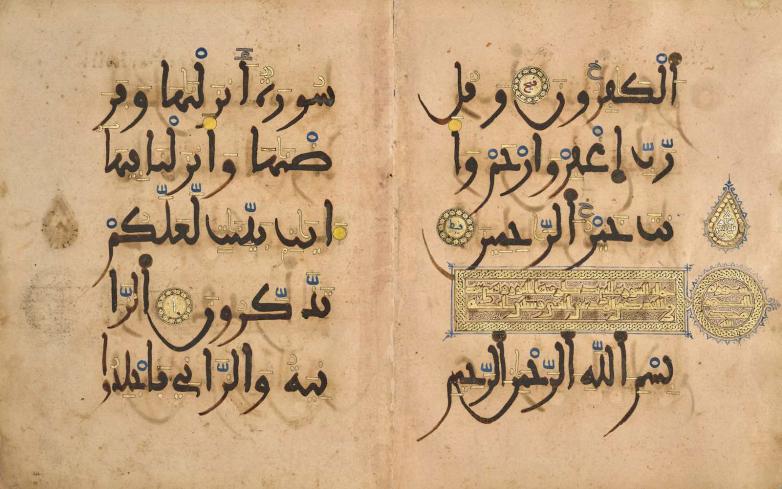 اَلْكَٰفِرُونَ وَقُل
رَّبِّ اِغْفِرْ وَارْحَمْ وَأَ
نتَ خَيْرُ اَلرَّٰحِمِينَ
بِسْمِ اِللَّهِ اِلرَّحْمَٰنِ اِلرَّحِيمِ
سُورَةٌ أَنزَلْنَٰهَا وَفَرَ
ضْنَٰهَا وَأَنزَلْنَا فِيهَا
ءَايَٰتٍ بَيِّنَٰتٍ لَّعَلَّكُمْ
تَذَّكَّرُونَ اَلزَّا
نِيَةُ وَالزَّانِي فَاجْلِدُوا